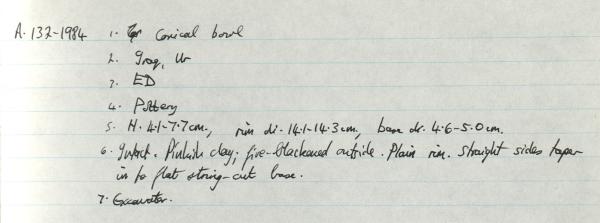 A. 132-1984 1. Conical bowl
2. Iraq, Ur
3. ED
4. Pottery
5. H. 4.1-7.7cm., rim di. 14.1-14.3cm, base di. 4.6-5.0cm.
6. Intact. Pinkish clay; fire-blackened outside. Plain rim. Straight sides taper
in to flat string-cut base.
7. Excavator.